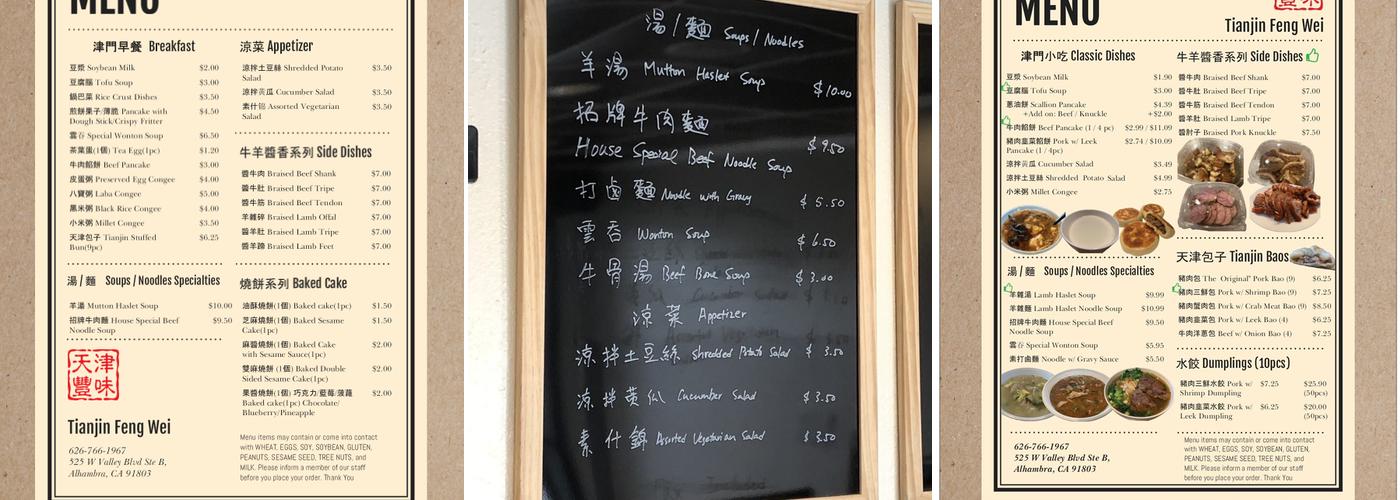 MENU
津門早餐 Breakfast
豆漿 Soybean Milk $2.00
豆腐腦 Tofu Soup $3.00
鍋巴菜 Rice Crust Dishes $3.50
煎餅果子/薄脆 Pancake with $4.50
Dough Stick/Crispy Fritter
雲吞 Special Wonton Soup $6.50
茶葉蛋(1個) Tea Egg(1pc) $1.20
牛肉餡餅 Beef Pancake $3.00
皮蛋粥 Preserved Egg Congee $4.00
八寶粥 Laba Congee $5.00
黑米粥 Black Rice Congee $4.00
小米粥 Millet Congee $3.50
天津包子 Tianjin Stuffed $6.25
Bun(9pc)
湯 / 麵 Soups / Noodles Specialties
羊湯 Mutton Haslet Soup $10.00
招牌牛肉麵 House Special Beef $9.50
Noodle Soup
天津
豐味
Tianjin Feng Wei
626-766-1967
525 W Valley Blvd Ste B,
Alhambra, CA 91803
涼菜 Appetizer
涼拌土豆絲 Shredded Potato $3.50
Salad
涼拌黃瓜 Cucumber Salad $3.50
素什锦 Assorted Vegetarian $3.50
Salad
牛羊醬香系列 Side Dishes
醬牛肉 Braised Beef Shank $7.00
醬牛肚 Braised Beef Tripe $7.00
醬牛筋 Braised Beef Tendon $7.00
羊雜碎 Braised Lamb Offal $7.00
醬羊肚 Braised Lamb Tripe $7.00
醬羊蹄 Braised Lamb Feet $7.00
燒餅系列 Baked Cake
油酥燒餅(1個) Baked cake(1pc) $1.50
芝麻燒餅(1個) Baked Sesame $1.50
Cake(1pc)
麻醬燒餅(1個) Baked Cake $2.00
with Sesame Sauce(1pc)
雙麻燒餅 (1個) Baked Double $2.00
Sided Sesame Cake(1pc)
果醬燒餅(1個) 巧克力/藍莓/菠蘿 $2.00
Baked cake(1pc) Chocolate/
Blueberry/Pineapple
Menu items may contain or come into contact
with WHEAT, EGGS, SOY, SOYBEAN, GLUTEN,
PEANUTS, SESAME SEED, TREE NUTS, and
MILK. Please inform a member of our staff
before you place your order. Thank You
湯 / 麵 Soups / Noodles
羊湯 Mutton Haslet Soup $10.00
招牌牛肉麵
House Special Beef Noodle Soup $9.50
打鹵麵 Noodle with Gravy $5.50
雲吞 Wonton Soup $6.50
牛骨湯 Beef Bone Soup $3.00
涼菜 Appetizer
涼拌土豆絲 Shredded Potato Salad $3.50
涼拌黃瓜 Cucumber Salad $3.50
素什錦 Assorted Vegetarian Salad $3.50
MENU
Tianjin Feng Wei
津門小吃 Classic Dishes
豆漿 Soybean Milk $1.90
豆腐腦 Tofu Soup $3.00
蔥油餅 Scallion Pancake $4.39
+Add on: Beef / Knuckle +$2.00
牛肉餡餅 Beef Pancake (1 / 4 pc) $2.99 / $11.09
豬肉韭菜餡餅 Pork w/ Leek $2.74 / $10.09
Pancake (1 / 4pc)
涼拌黃瓜 Cucumber Salad $3.49
涼拌土豆絲 Shredded Potato Salad $4.99
小米粥 Millet Congee $2.75
湯 / 麵 Soups / Noodles Specialties
羊雜湯 Lamb Haslet Soup $9.99
羊雜麵 Lamb Haslet Noodle Soup $10.99
招牌牛肉麵 House Special Beef $9.50
Noodle Soup
雲吞 Special Wonton Soup $5.95
素打鹵麵 Noodle w/ Gravy Sauce $5.50
626-766-1967
525 W Valley Blvd Ste B,
Alhambra, CA 91803
牛羊醬香系列 Side Dishes
醬牛肉 Braised Beef Shank $7.00
醬牛肚 Braised Beef Tripe $7.00
醬牛筋 Braised Beef Tendon $7.00
醬羊肚 Braised Lamb Tripe $7.00
醬肘子 Braised Pork Knuckle $7.50
天津包子 Tianjin Baos
豬肉包 The "Original" Pork Bao (9) $6.25
豬肉三鮮包 Pork w/ Shrimp Bao (9) $7.25
豬肉蟹肉包 Pork w/ Crab Meat Bao (9) $8.50
豬肉韭菜包 Pork w/ Leek Bao (4) $6.25
牛肉洋蔥包 Beef w/ Onion Bao (4) $7.25
水餃 Dumplings (10pcs)
豬肉三鮮水餃 Pork w/ $7.25 $25.90
Shrimp Dumpling (50pcs)
豬肉韭菜水餃 Pork w/ $6.25 $20.00
Leek Dumpling (50pcs)
Menu items may contain or come into contact
with WHEAT, EGGS, SOY, SOYBEAN, GLUTEN,
PEANUTS, SESAME SEED, TREE NUTS, and
MILK. Please inform a member of our staff
before you place your order. Thank You